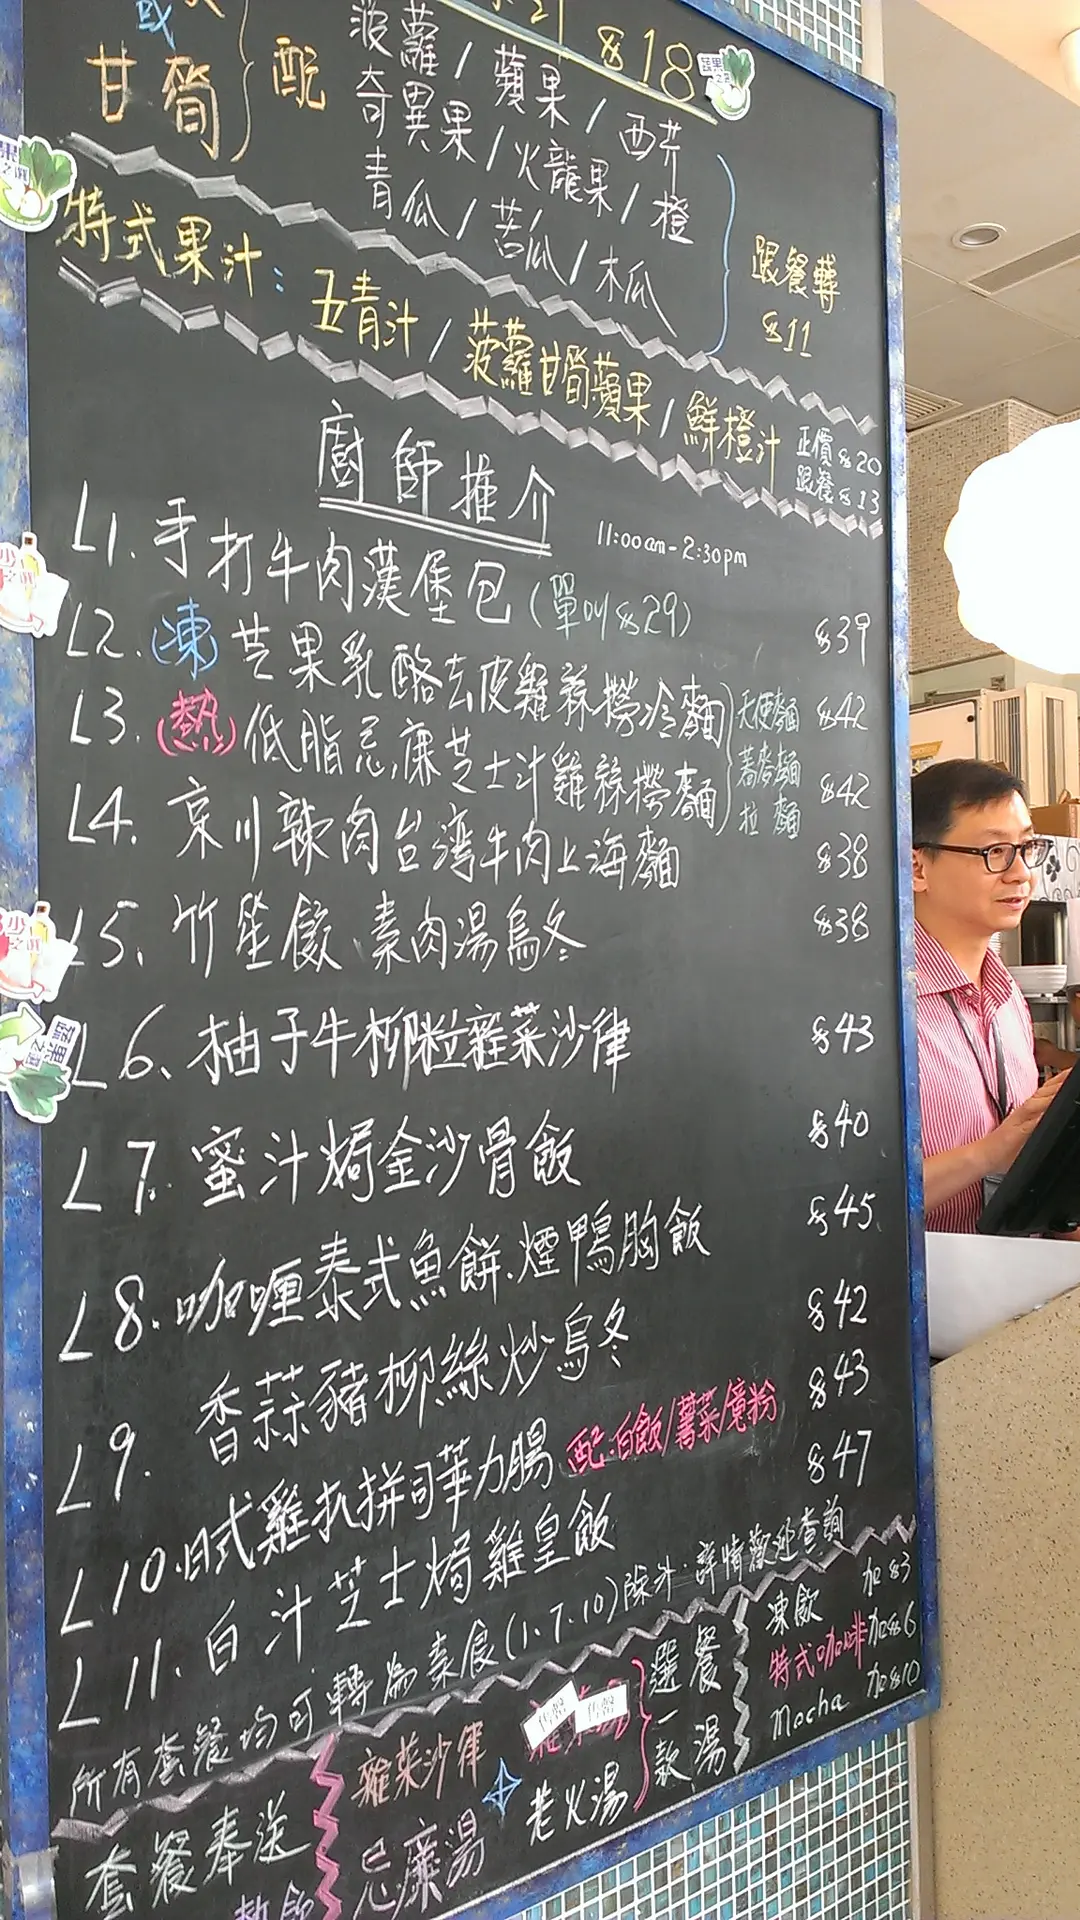 $18
甘筍
配
菠蘿/蘋果/西芹
奇異果/火龍果/橙
青瓜/苦瓜/木瓜
跟餐轉
$11
特式果汁:五青汁/菠蘿甘筍蘋果/鮮橙汁
正價$20
跟餐$13
廚師推介
11:00am-2:30pm
L1.手打牛肉漢堡包(單叫$29) $39
L2.(凍)芝果乳酪去皮雞絲撈冷麵 $42
L3.(熱)低脂忌廉芝士汁雞絲撈麵 $42
天使麵
蕎麥麵
拉麵
L4.京川辣肉台灣牛肉上海麵 $38
L5.竹笙餃、素肉湯烏冬 $38
L6、柚子牛柳粒雜菜沙律 $43
L7.蜜汁焗金沙骨飯 $40
L8.咖喱泰式魚餅.煙鴨胸飯 $45
L9.香蒜豬柳絲炒烏冬 $42
L10.日式雞扒拼司華力腸 配:白飯/薯菜/意粉 $43
L11.白汁芝士焗雞皇飯 $47
所有套餐均可轉為素食(1.7.10)除外.詳情歡迎查詢
套餐奉送
雜菜沙律
忌廉湯
老火湯
選一款
餐湯
凍飲 加$3
特式咖啡 加$6
Mocha 加$10
熱飲